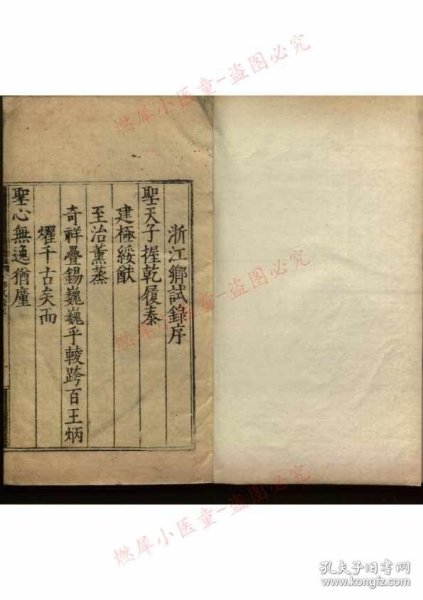 浙江鄉試錄序
聖天子握乾履泰
建極綏猷
至治薰蒸
奇祥疊錫巍巍乎輘跨百王炳
燿千古矣而
聖心無逸猶廑
燃犀小医童-盗图必究
燃犀小医童-盗图必究
燃犀小医童-盗图必究
燃犀小医童-盗图必究
孔夫子旧书网
www.kongfz.com